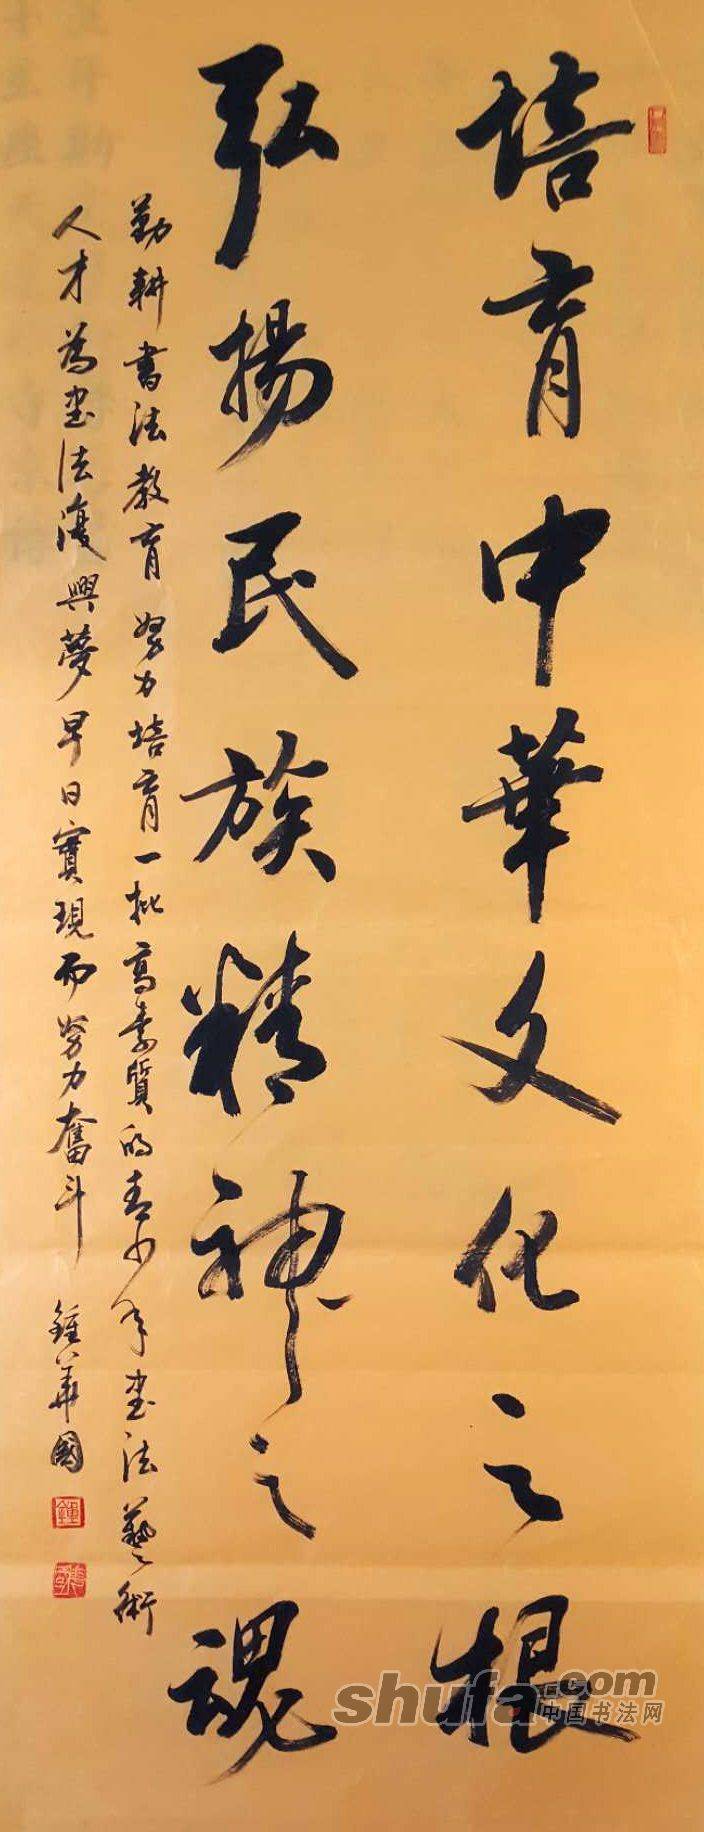 培育中華文化之根
弘揚民族精神之魂
勤耕書法教育努力培育一批高素質的青少年書法藝術
人才為書法復興夢早日實現而努力奮斗
鍾華國
鍾
shufa.com
中国书法网